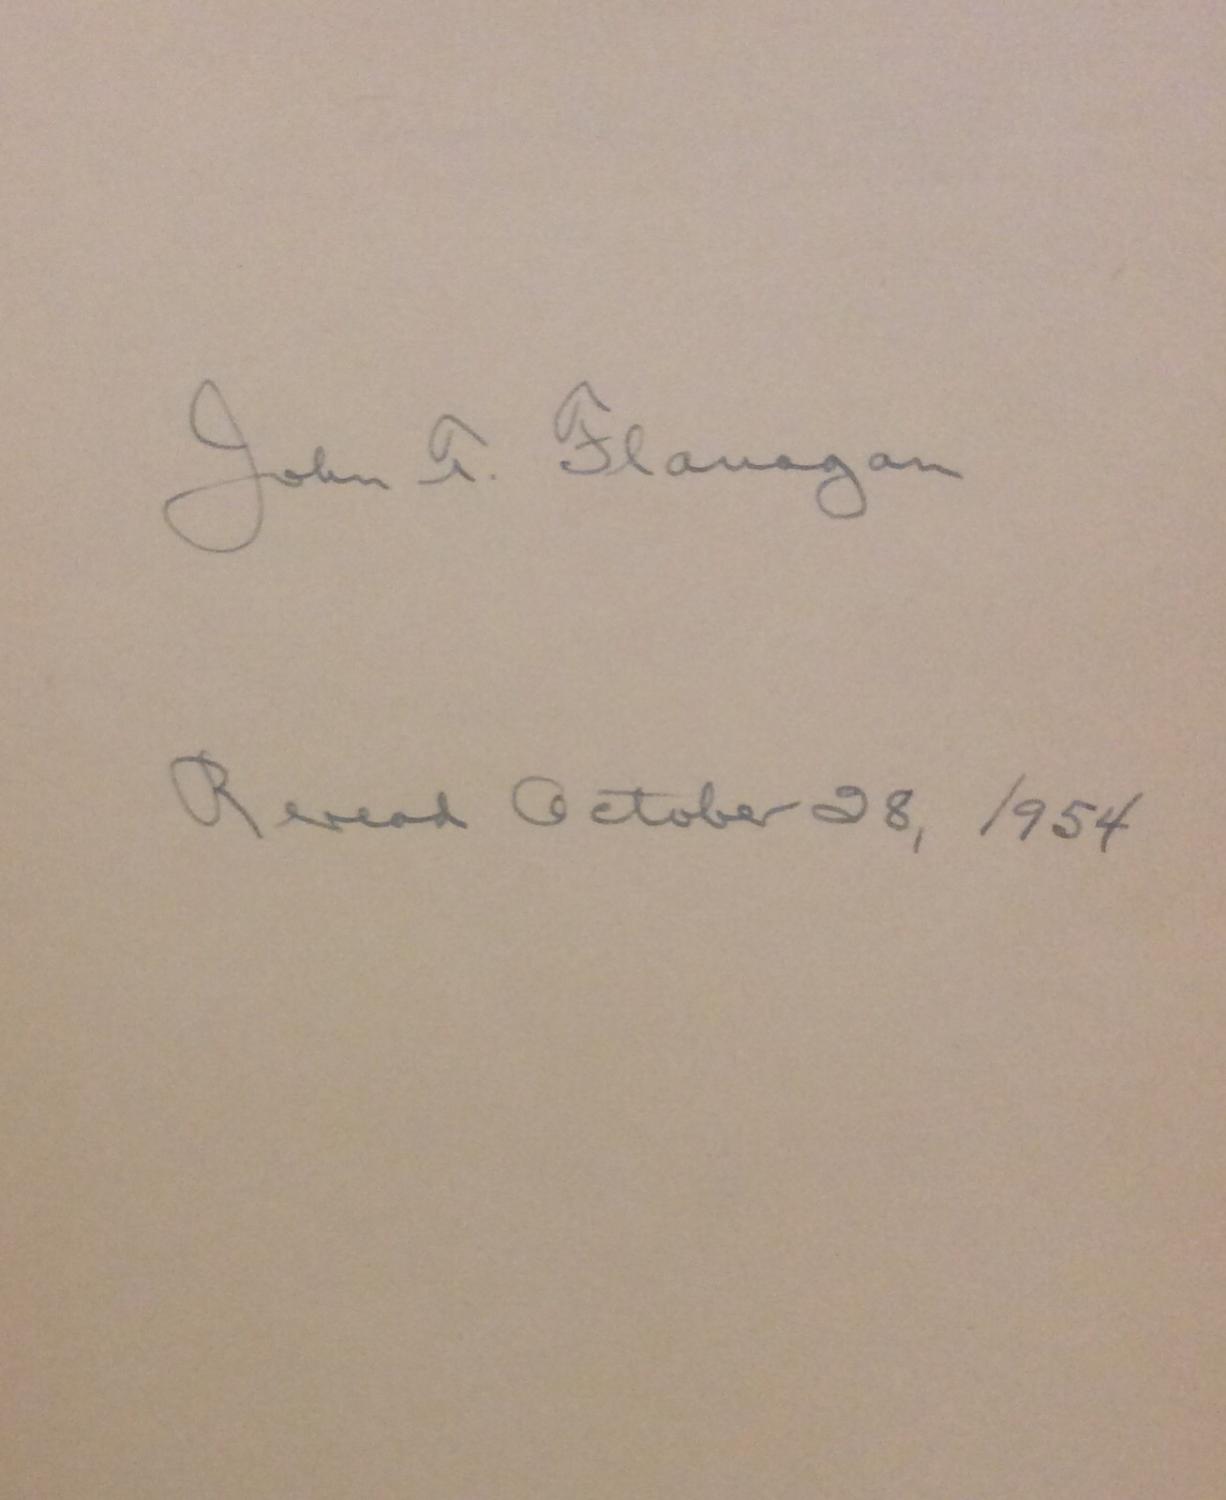 John T. Flanagan
Reread October 28, 1954